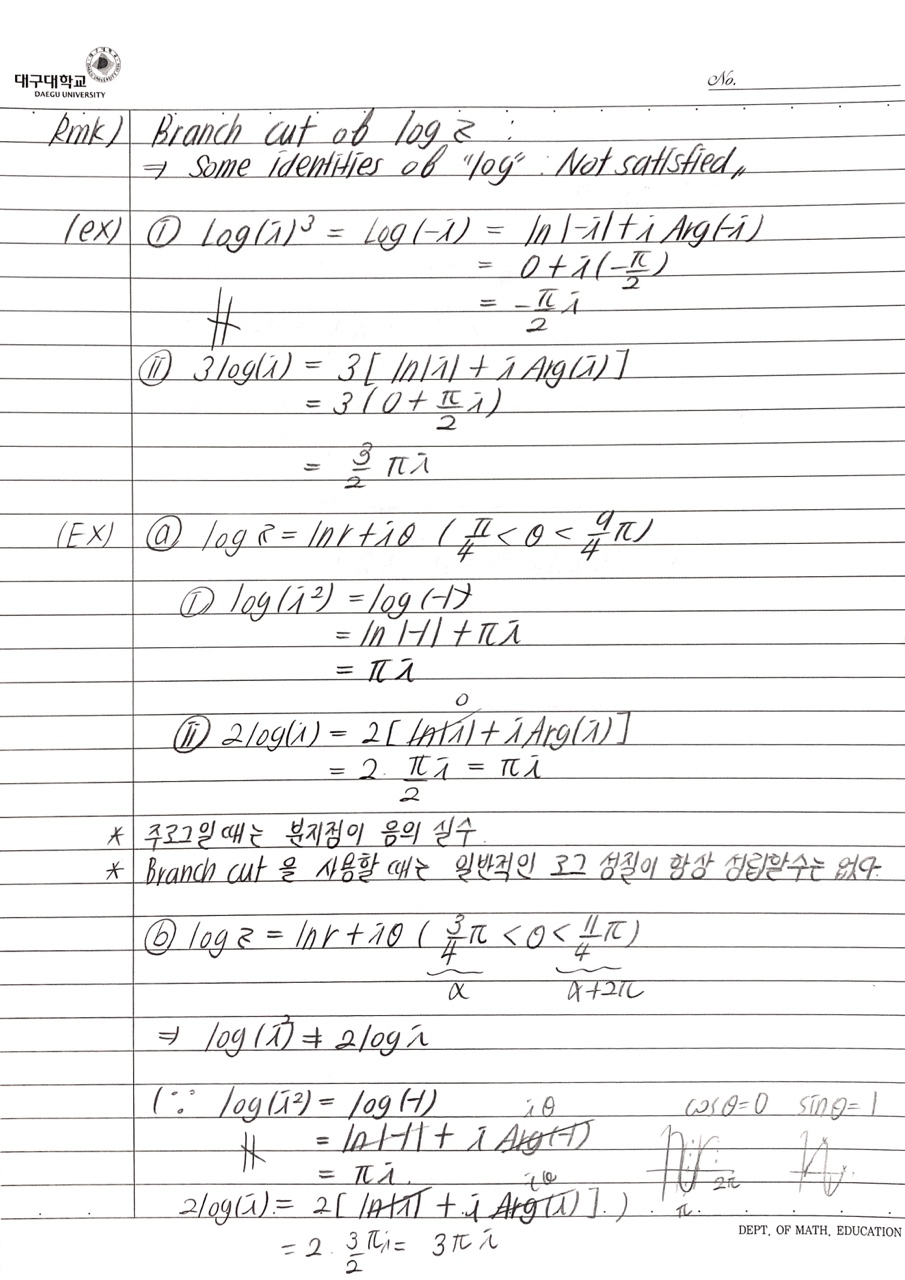 대구대학교
DAEGU UNIVERSITY
No.
Rmk) Branch cut of log z :
⇒ Some identities of "log" : Not satisfied〃
(ex) ⓘ Log(i)³ = Log(-i) = ln|-i| + i Arg(-i)
= 0 + i(-π/2)
= -π/2 i
∦
ⓘⓘ 3log(i) = 3[ ln|i| + i Arg(i) ]
= 3(0 + π/2 i)
= 3/2 πi
(EX) ⓐ log z = lnr + iθ ( π/4 < θ < 9/4 π)
ⓘ log(i²) = log(-1)
= ln|-1| + πi
= πi
0
ⓘⓘ 2log(i) = 2[ ln|i| + i Arg(i) ]
= 2 · π/2 i = πi
* 주로그일 때는 분지점이 음의 실수.
* Branch cut 을 사용할 때는 일반적인 로그 성질이 항상 성립할수는 없다.
ⓑ log z = lnr + iθ ( 3/4 π < θ < 11/4 π)
α α+2π
⇒ log(i²) ≠ 2log i
(∵ log(i²) = log(-1) iθ cosθ=0 sinθ=1
= ln|-1| + i Arg(-1)
= πi. iθ 2π
2log(i) = 2[ ln|i| + i Arg(i) ] . ) π
DEPT. OF MATH. EDUCATION
= 2 · 3/2 πi = 3πi